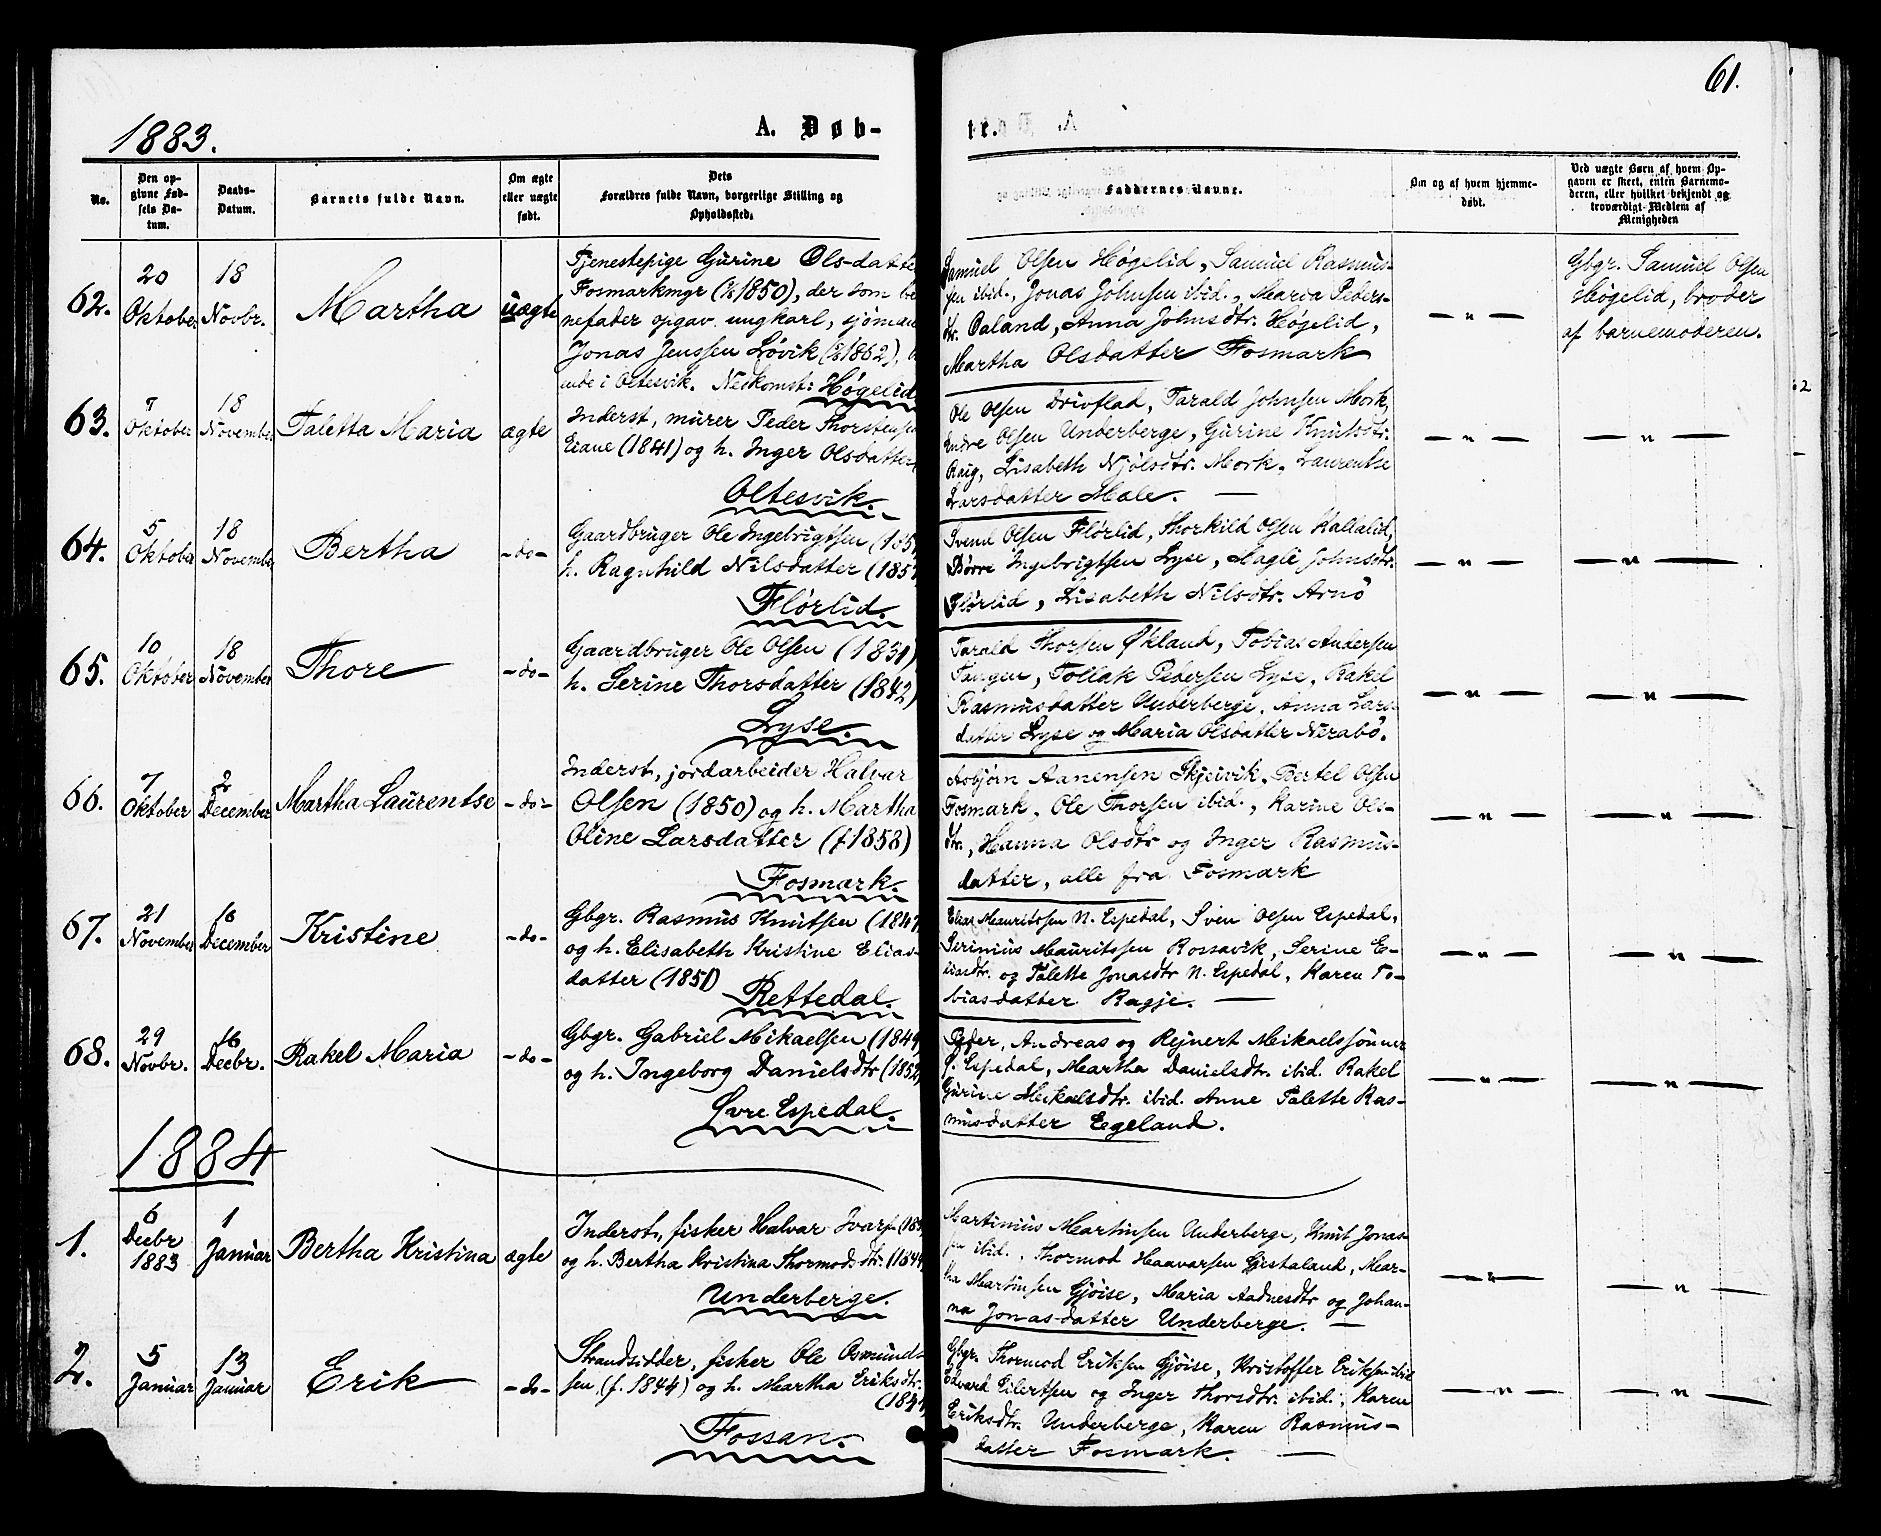 61.
1883.
A. Døb-
te.
No.
Den op-
givne Fød-
sels Da-
tum.
Daabs-
Datum.
Barnets fulde Navn.
Om ægte
eller uægte
født.
Dets
Forældres fulde Navn, borgerlige Stilling og
Opholdssted.
Faddernes Navne.
Om og af hvem hjemme-
døbt.
Ved uægte Børn af hvem Op-
gaven er skeet, enten Barnemo-
deren, eller hvilket bekjendt og
troværdigt Medlem af
Menigheden
62.
20
Oktober
18
Novbr.
Martha
uægte
Tjenestepige Gurine Ols-datter
Fosmarkmyr (1850), der som
nefader opgav ungkarl, sjöman
Jonas Jenssen Løvik (1862),
i Oltesvik. Nedkomst: Høgelid
Samuel Olsen Høgelid, Samuel Rasmus-
sen ibid., Jonas Johnsen ibid., Maria Peders-
dtr. Daland, Anna Johnsdtr. Høgelid,
Martha Olsdatter Fosmark
— " —
Gbgr. Samuel Olsen
Høgelid, broder
af barnemoderen.
63.
7
Oktober
18
November
Taletta Maria
ægte
Inderst, murer Peder Thorstensen
Eiane (1841) og h. Inger Olsdatter
Oltesvik.
Ole Olsen Drivflad, Tarald Johnsen Mork,
Endre Olsen Underberge, Gurine Knutsdtr.
Raig, Lisabeth Njölsdtr. Mork, Laurentse
Larsdatter Mæle. —
— " —
— " —
64.
5
Oktober
18
November
Bertha
-do-
Gaardbruger Ole Ingebrigtsen
h. Ragnhild Nilsdatter
Flørlid.
Svend Olsen Flørlid, Thorkild Olsen Kallalid,
Børre Ingebrigtsen Lyse, Magle Johnsdtr.
Flørlid, Lisabeth Nilsdtr. Arnö
— " —
— " —
65.
10
Oktober
18
November
Thore
-do-
Gaardbruger Ole Olsen (1831)
h. Serine Thorsdatter (1842)
Lyse.
Tarald Thorsen Økland, Tobias Andersen
Tangen, Tollak Pedersen Lyse, Rakel
Rasmusdatter Underberge, Anna Lars-
datter Lyse og Maria Olsdatter Nerabö.
— " —
— " —
66.
7
Oktober
2
December
Martha Laurentse
-do-
Inderst, jordarbeider Halvar
Olsen (1850) og h. Martha
Oline Larsdatter (f 1858)
Fosmark.
Asbjörn Aanensen Skjeivik, Bertel Olsen
Fosmark, Ole Thorsen ibid., Karine Ols-
dtr., Hanna Olsdtr og Inger Rasmus-
datter, alle fra Fosmark
— " —
— " —
67.
21
November
16
December
Kristine
-do-
Gbgr. Rasmus Knutsen (1847
og h. Elisabeth Kristine Elias-
datter (1851)
Rettedal.
Elias Mauritssen N. Espedal, Sven Olsen Espedal,
Serinius Mauritssen Rossavik, Serine E-
liasdtr. og Talette Jonasdtr N. Espedal, Karen To-
biasdatter Ragje. —
— " —
— " —
68.
29
Novbr.
16
Decbr.
Rakel Maria
-do-
Gbgr. Gabriel Mikaelsen (1849
og h. Ingeborg Danielsdtr (1852)
Øvre Espedal.
Peder, Andreas og Rejnert Mikaelssønner
Ø. Espedal, Martha Danielsdtr. ibid. Rakel
Gurine Mikalsdtr. ibid. Anne Talette Ras-
musdatter Egeland.
— " —
— " —
1884
1.
6
Decbr
1883
1
Januar
Bertha Kristina
ægte
Inderst, fisker Halvar Ivars.
og h. Bertha Kristina Thormodsdtr. (1844
Underberge.
Martinius Martinsen Underberge, Knut Jonas-
sen ibid., Thormod Haavarsen Gjestaland, Mar-
tha Martinsen Gjöise, Maria Aadnesdtr og Johan-
na Jonasdatter Underberge. —
— " —
— " —
2.
5
Januar
13
Januar
Erik
-do-
Strandsidder, fisker Ole Osmund-
sen (f. 1844) og h. Martha Eriksdtr.
Fossan.
Gbgr. Thormod Eriksen Gjöise, Kristoffer Eriksen ibid
Edvard Eilertsen og Inger Thorsdtr. ibid., Karen
Eriksdtr. Underberge, Karen Rasmus-
datter Fosmark. —
— " —
— " —